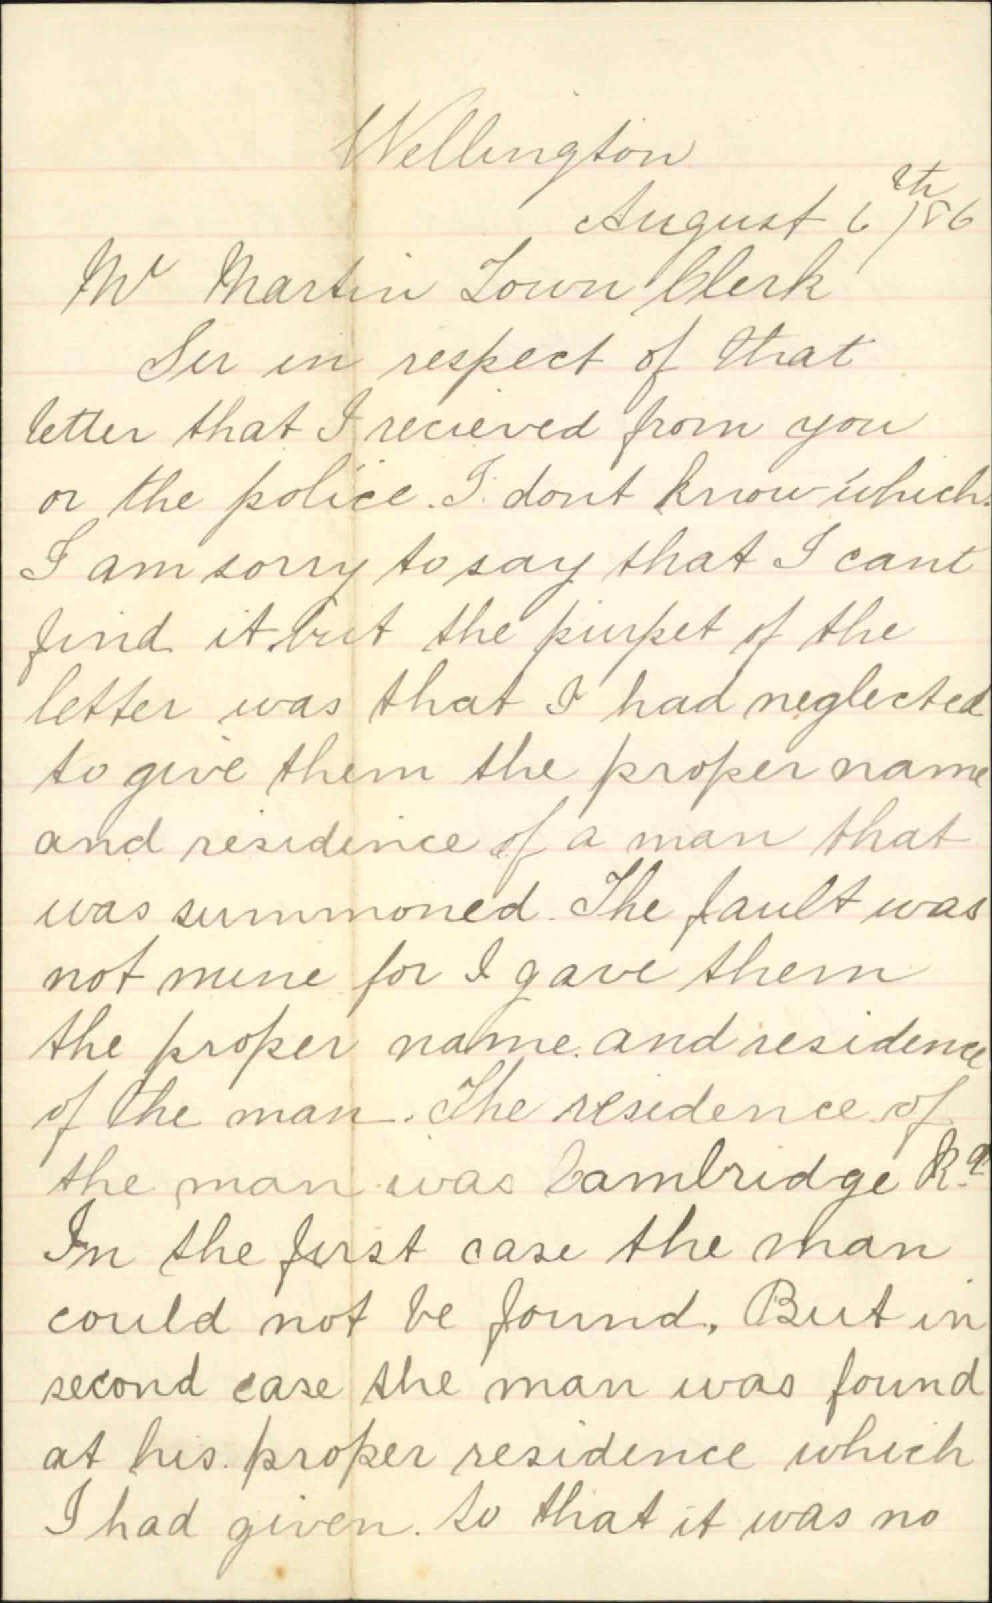 Wellington
August 6th/86
Mr Martin Town Clerk
Sir in respect of that
letter that I recieved from you
or the police. I dont know which.
I am sorry to say that I cant
find it but the purpet of the
letter was that I had neglected
to give them the proper name
and residence of a man that
was summoned. The fault was
not mine for I gave them
the proper name and residence
of the man. The residence of
the man was Cambridge Rd
In the first case the man
could not be found. But in
second case the man was found
at his proper residence which
I had given. so that it was no